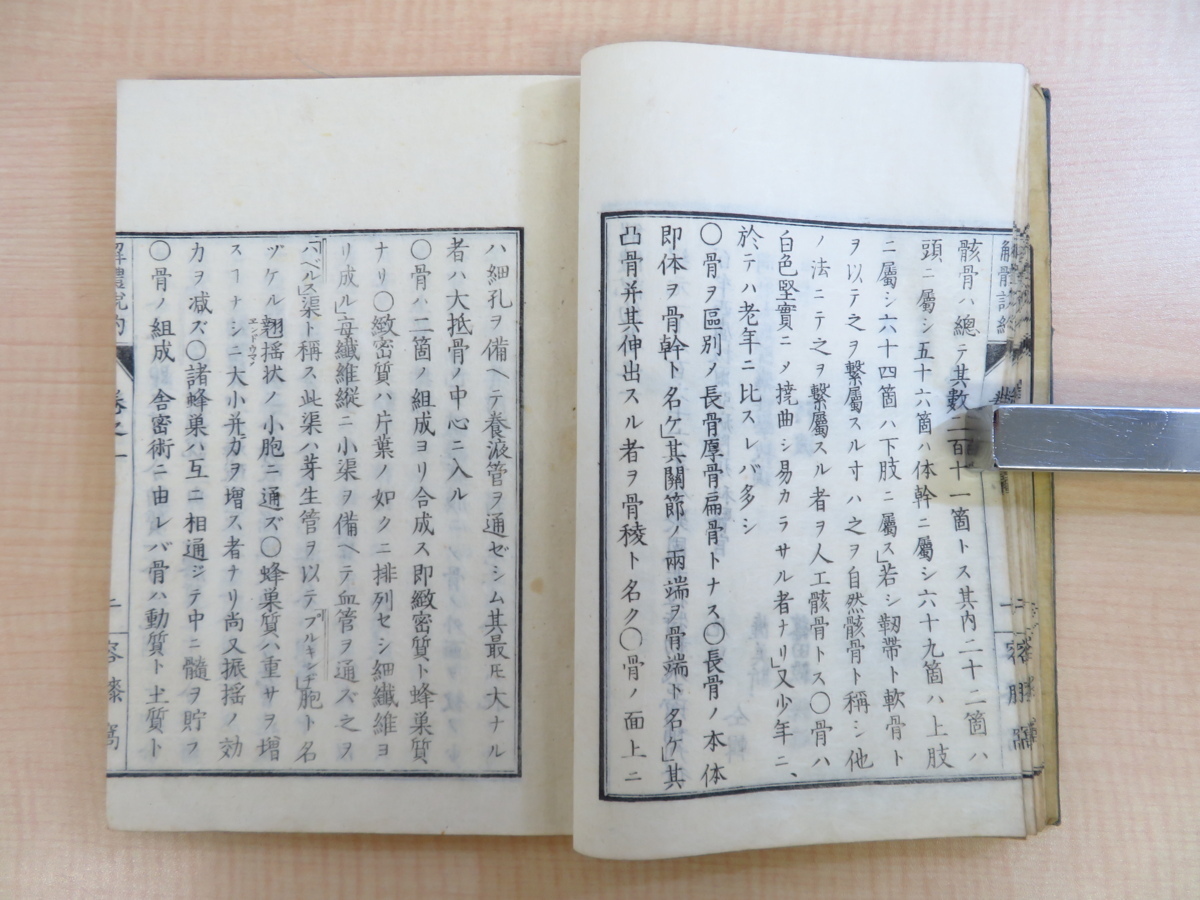 骸骨ハ總テ其數二百十一箇トス其内二十二箇ハ
頭ニ屬シ五十六箇ハ体幹ニ屬シ六十九箇ハ上肢
ニ屬シ六十四箇ハ下肢ニ屬ス」若シ韌帶ト軟骨ト
ヲ以テ之ヲ繫屬スルヿハ之ヲ自然骸骨ト稱シ他
ノ法ニテ之ヲ繫屬スル者ヲ人工骸骨トス〇骨ハ
白色堅實ニメ撓曲シ易カラサル者ナリ」又少年ニ、
於テハ老年ニ比スレバ多シ
〇骨ヲ區別メ長骨厚骨扁骨トナス〇長骨ノ本体
即体ヲ骨幹ト名ケ」其關節ノ兩端ヲ骨端ト名ケ」其
凸骨并其伸出スル者ヲ骨稜ト名ク〇骨ノ面上ニ
ハ細孔ヲ備ヘテ養液管ヲ通ゼシム其最モ大ナル
者ハ大抵骨ノ中心ニ入ル
〇骨ハ二箇ノ組成ヨリ合成ス即緻密質ト蜂巢質
ナリ〇緻密質ハ片葉ノ如クニ排列セシ細纖維ヨ
リ成ル」每纖維縱ニ小渠ヲ備ヘテ血管ヲ通ズ之ヲ
「ハベルス」渠ト稱ス此渠ハ芽生管ヲ以テ「プルキンヂ」胞ト名
ヅケル翱揺状ノ小胞ニ通ズ〇蜂巢質ハ重サヲ增
スヿナシニ大小并力ヲ增ス者ナリ尚又振揺ノ効
カヲ减ズ〇諸蜂巢ハ互ニ相通ジテ中ニ髓ヲ貯フ
〇骨ノ組成舍密術ニ由レバ骨ハ動質ト土質ト
卷之一
二
容膝窩